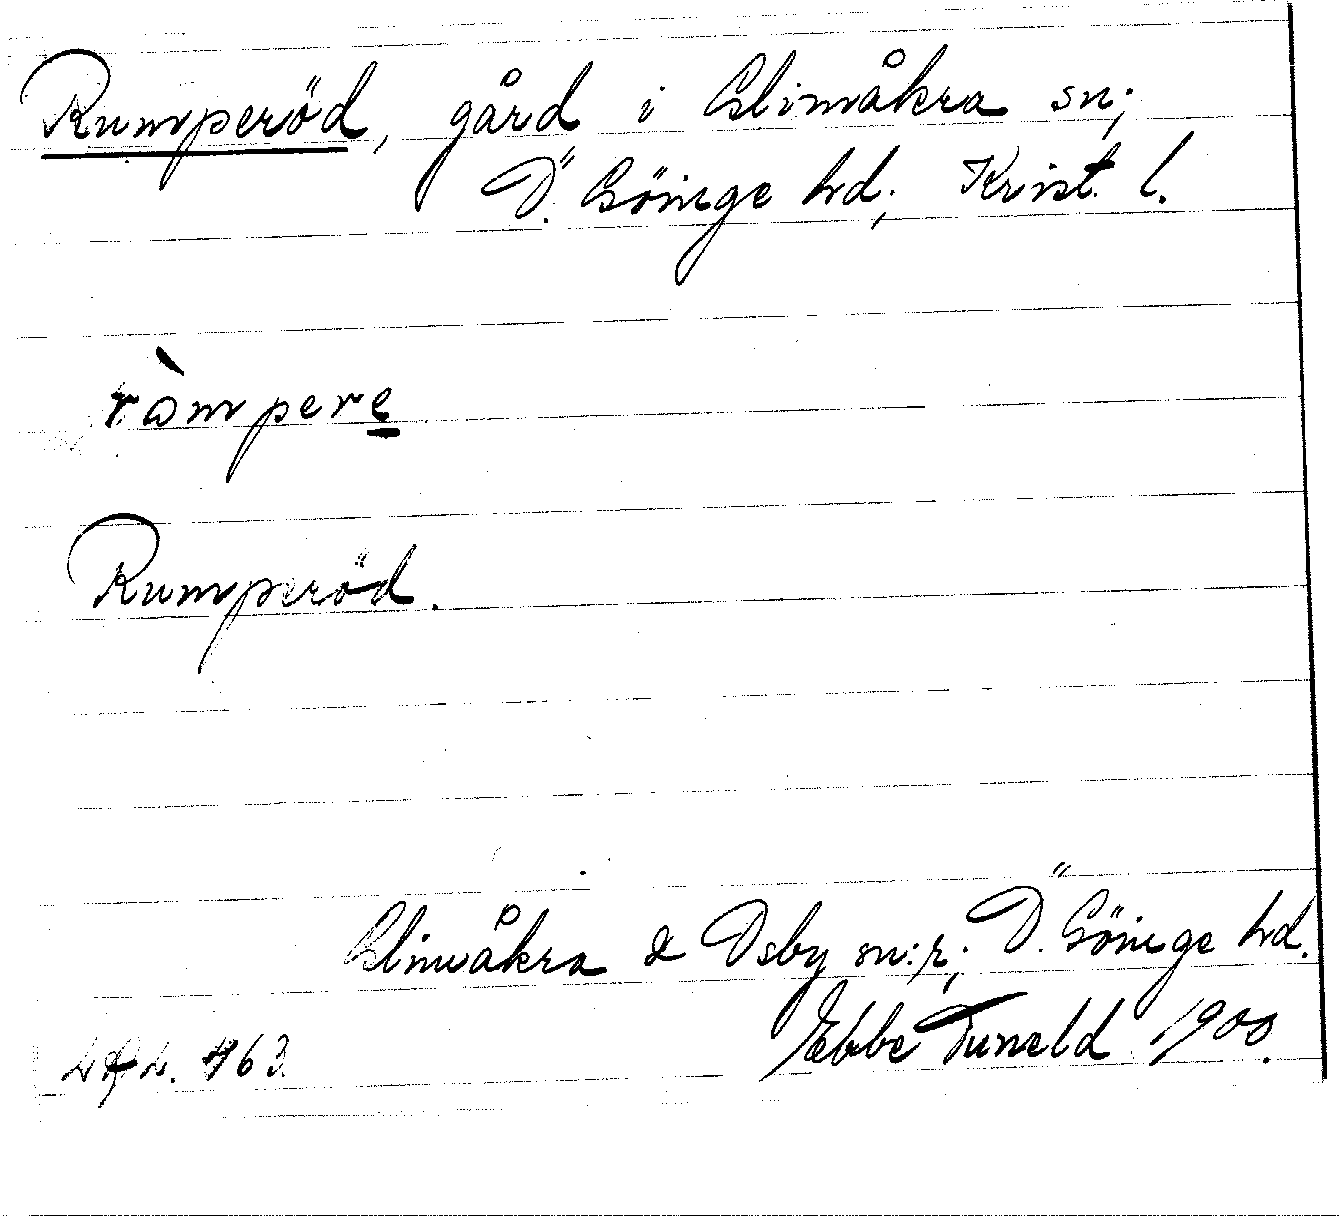 Rumperöd, gård i Glimåkra sn;
Ö. Göinge hd; Krist. l.
ròmpere
Rumperöd.
Glimåkra & Osby sn:r; Ö. Göinge hd.
Ebbe Tuneld 1900.
463